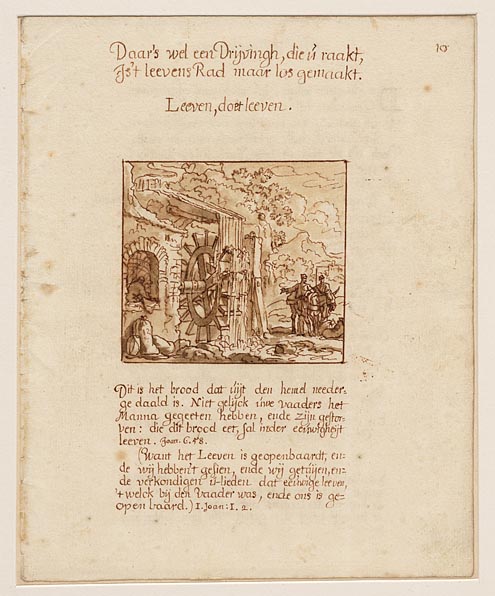 Daar's wel een Drijvingh, die û raakt,
Js't leevens Rad maar los gemaakt.
10
Leeven, doet leeven.
Dit is het brood dat ûijt den hemel needer-
ge daald is. Niet gelijck ûwe vaaders het
Manna gegeeten hebben, ende zijn gestor-
ven: die dit brood eet, sal inder eeûwigheijt
leeven. Joan. 6. 58.
(Want het Leeven is geopenbaardt, en-
de wij hebben't gesien, ende wij getûijen, en-
de verkondigen û-lieden dat eeûwige leeven,
't welck bij den Vaader was, ende ons is ge-
open baard.) I. Joan: I. 2.